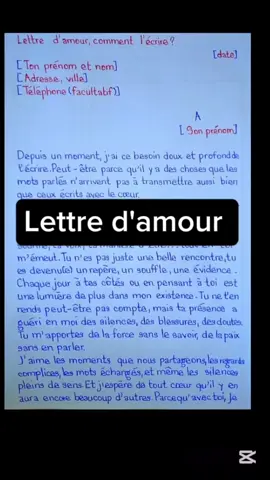 Lettre d'amour, comment l'écrire?
[date]
[Ton prénom et nom]
[Adresse, ville]
[Téléphone (facultatif)]
A
[Son prénom]
Depuis un moment, j'ai ce besoin doux et profond de
l'écrire. Peut-être parce qu'il y a des choses que les
mots parlés n'arrivent pas à transmettre aussi bien
que ceux écrits avec le cœur.
Lettre d'amour
m'émeut. Tu n'es pas juste une belle rencontre, tu
es devenu(e) un repère, un souffle, une évidence.
Chaque jour à tes côtés ou en pensant à toi est
une lumière de plus dans mon existence. Tu ne t'en
rends peut-être pas compte, mais ta présence a
guéri en moi des silences, des blessures, des doutes.
Tu m'apportes de la force sans le savoir, de la paix
sans en parler.
J'aime les moments que nous partageons, les regards
complices, les mots échangés, et même les silences
pleins de sens. Et j'espère de tout cœur qu'il y en
aura encore beaucoup d'autres. Parce qu'avec toi, je
CapCut